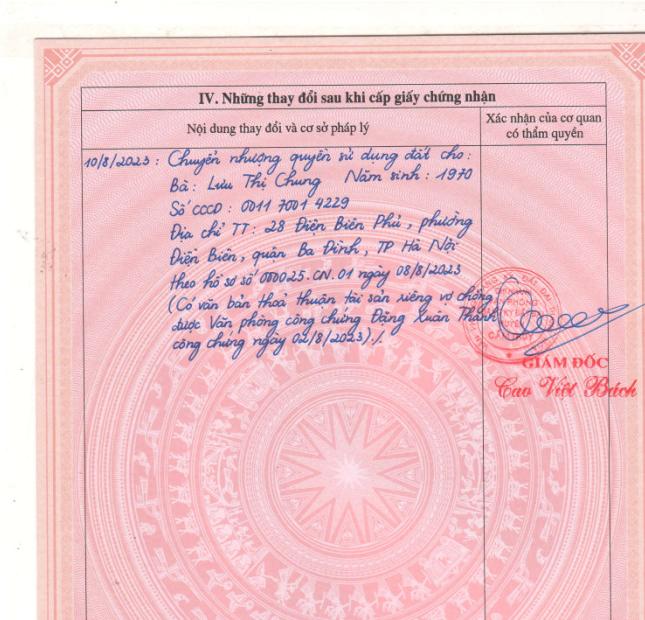 IV. Những thay đổi sau khi cấp giấy chứng nhận
Nội dung thay đổi và cơ sở pháp lý
Xác nhận của cơ quan
có thẩm quyền
10/8/2023: Chuyển nhượng quyền sử dụng đất cho:
Bà: Lưu Thị Chung Năm sinh: 1970
Số CCCD: 001170014229
Địa chỉ TT: 28 Điện Biên Phủ, phường
Điện Biên, quận Ba Đình, TP Hà Nội
theo hồ sơ số 000025.CN.01 ngày 08/8/2023
(Có văn bản thoả thuận tài sản riêng vợ chồng
được Văn phòng công chứng Đặng Xuân Thành
công chứng ngày 02/8/2023)./.
GIÁM ĐỐC
Cao Việt Bách